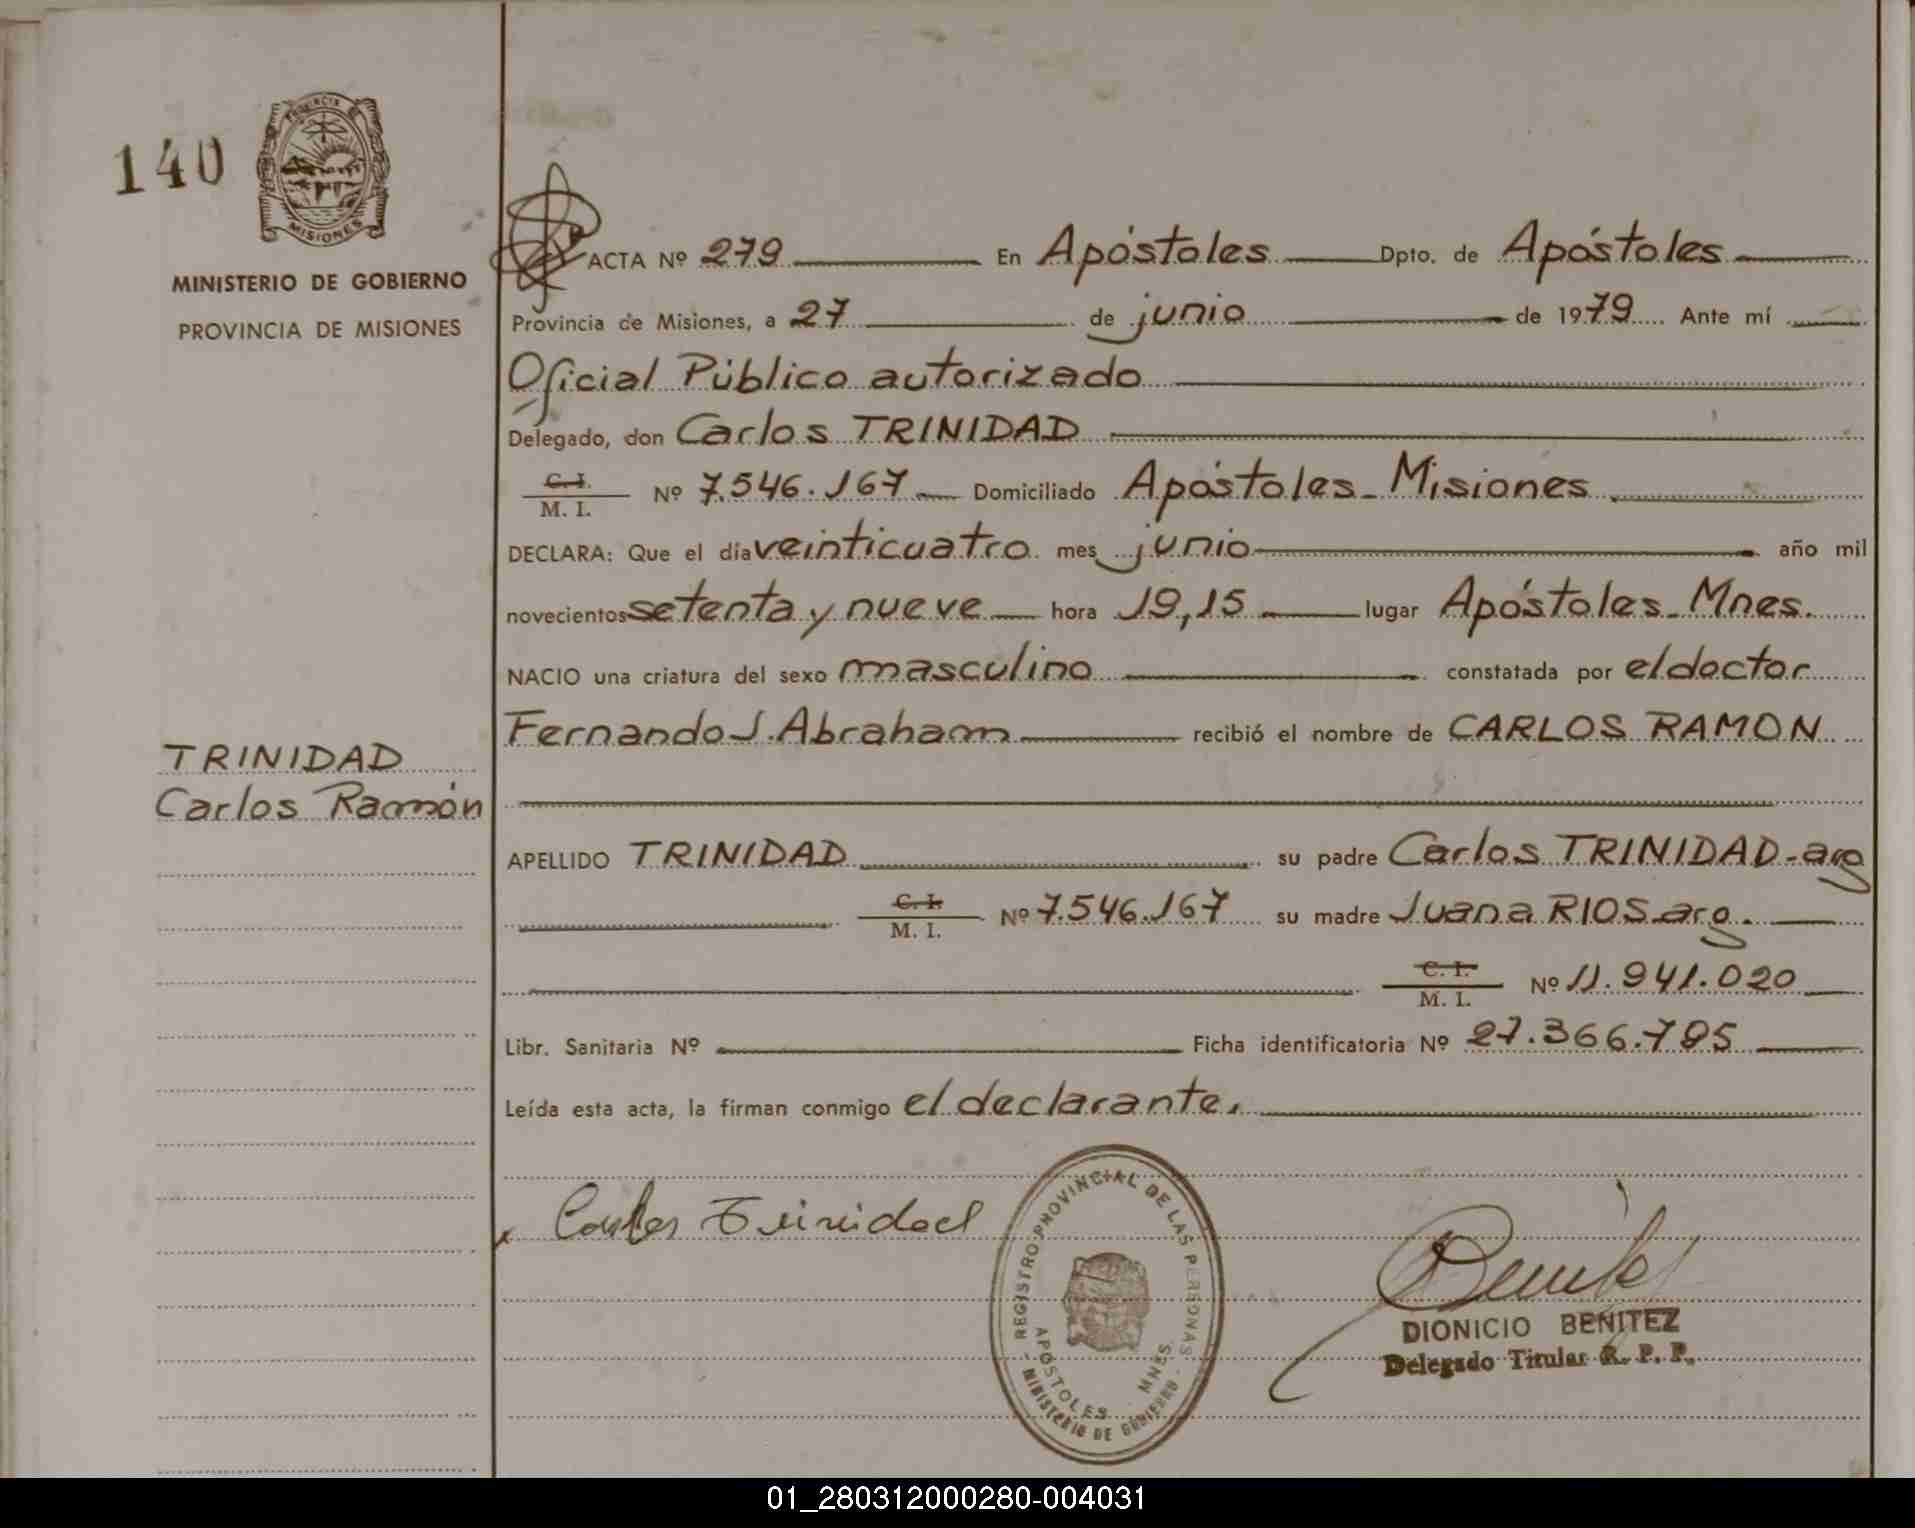 140
PROVINCIA DE
MISIONES
MINISTERIO DE GOBIERNO
PROVINCIA DE MISIONES
TRINIDAD
Carlos Ramón
ACTA Nº 279 En Apóstoles Dpto. de Apóstoles
Provincia de Misiones, a 27 de junio de 1979 Ante mí
Oficial Público autorizado
Delegado, don Carlos TRINIDAD
C. I.
M. I. Nº 7.546.167 Domiciliado Apóstoles - Misiones
DECLARA: Que el día veinticuatro mes junio año mil
novecientos setenta y nueve hora 19,15 lugar Apóstoles - Mnes.
NACIO una criatura del sexo masculino constatada por el doctor
Fernando J. Abraham recibió el nombre de CARLOS RAMON
APELLIDO TRINIDAD su padre Carlos TRINIDAD - arg
C. I.
M. I. Nº 7.546.167 su madre Juana RIOS - arg.
C. I.
M. I. Nº 11.941.020
Libr. Sanitaria Nº Ficha identificatoria Nº 27.366.795
Leída esta acta, la firman conmigo el declarante.
x Carlos Trinidad
REGISTRO PROVINCIAL DE LAS PERSONAS
APOSTOLES MNES.
MINISTERIO DE GOBIERNO
Benitez
DIONICIO BENITEZ
Delegado Titular R. P. P.
01_280312000280-004031